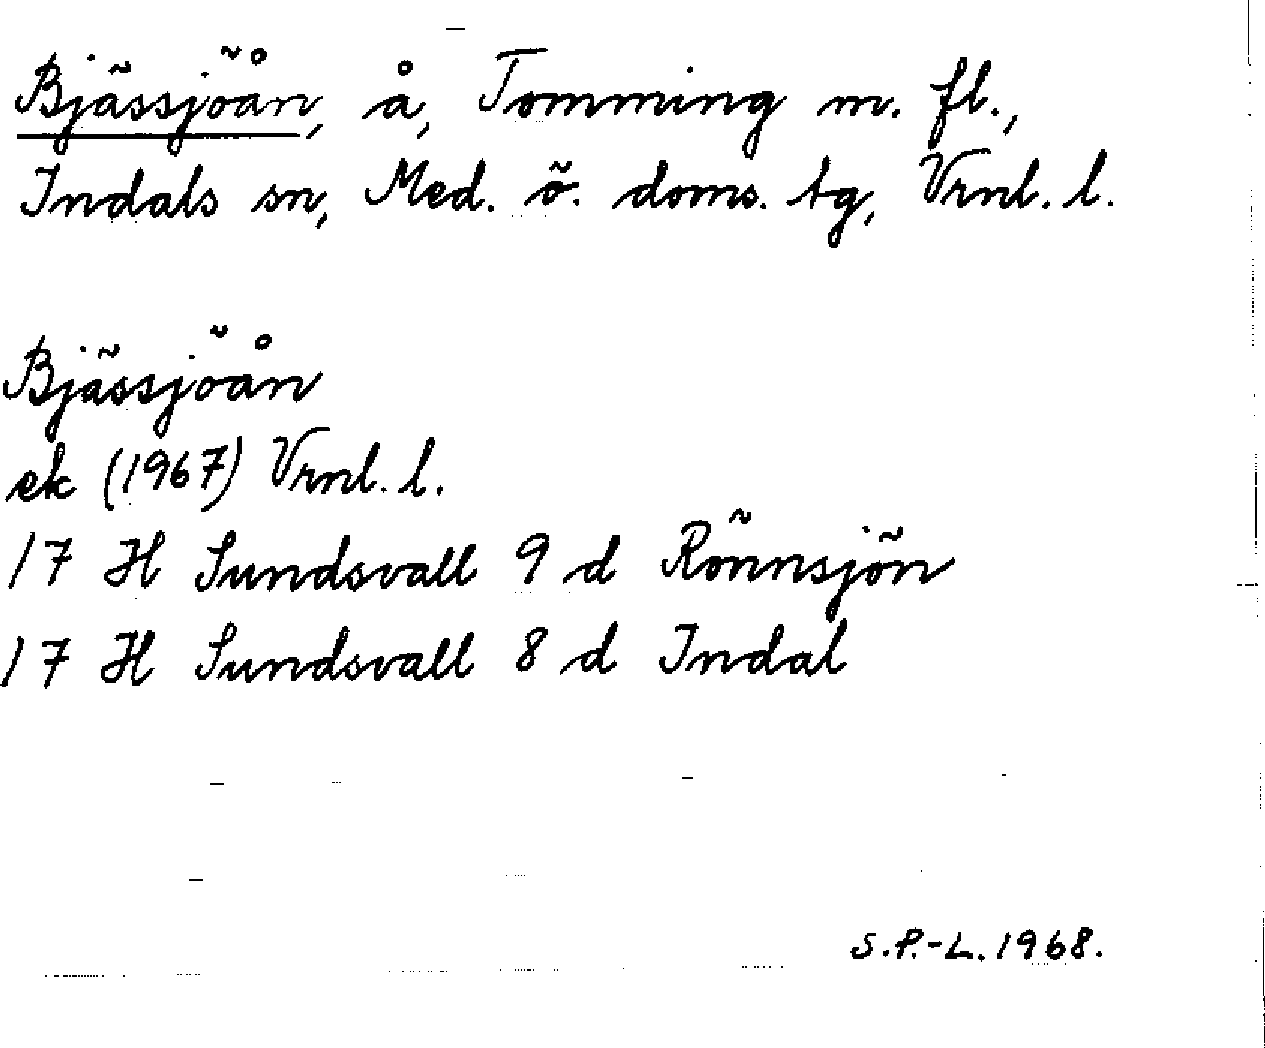 Bjässjöån, å, Tomming m. fl.,
Indals sn, Med. ö. doms. tg, Vrnl. l.
Bjässjöån
ek (1967) Vrnl. l.
17 H Sundsvall 9 d Rönnsjön
17 H Sundsvall 8 d Indal
S.P.-L. 1968.